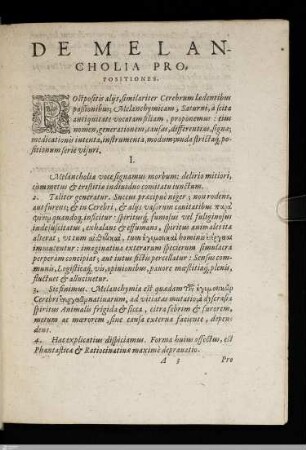 DE MELAN-
CHOLIA PRO-
POSITIONES.
POstpositis alijs, similiter Cerebrum lædentibus
passionibus; Melanchymicam, Saturni, à scita
antiquitate vocatam filiam, proponemus: eius
nomen, generationem, causas, differentias, signa,
medicationis intenta, instrumenta, modumque
positionum serie visuri.
I.
Melancholiæ voce signamus morbum: delirio mitiori,
commetus & tristitiæ individuo comitatu iunctum.
2. Taliter generatur. Succus præcipuè niger, non rodens,
aut furens; & in Cerebri, & alijs vasorum cavitatibus
quandoq; insidens: spiritusq́; fumosus vel fuliginosus
inde suscitatus, exhalans & effumans, spiritum animales ita
alterat, vtum
imaginatiua externarum specierum simulacra
perperam concipiat, aut intus fictis percellatur: Sensus com-
munis, Logisticaq́; vis, opinionibus, pauore mæstitiaq́; plenis,
fluctuet & allucinetur.
3. Sistimus. Melanchymia est quædam
Cerebri, ob vitiatas
spiritus Animalis frigida & sicca, citra febrim & furorem,
metum ac mœrorem, sine causa externa faciente, depen-
dens.
4. Hæc explicatius dispiciamus. Forma huius affectus, est
Phantasticæ & Ratiocinatiuæ maximè deprauatio.
A 3 Pro